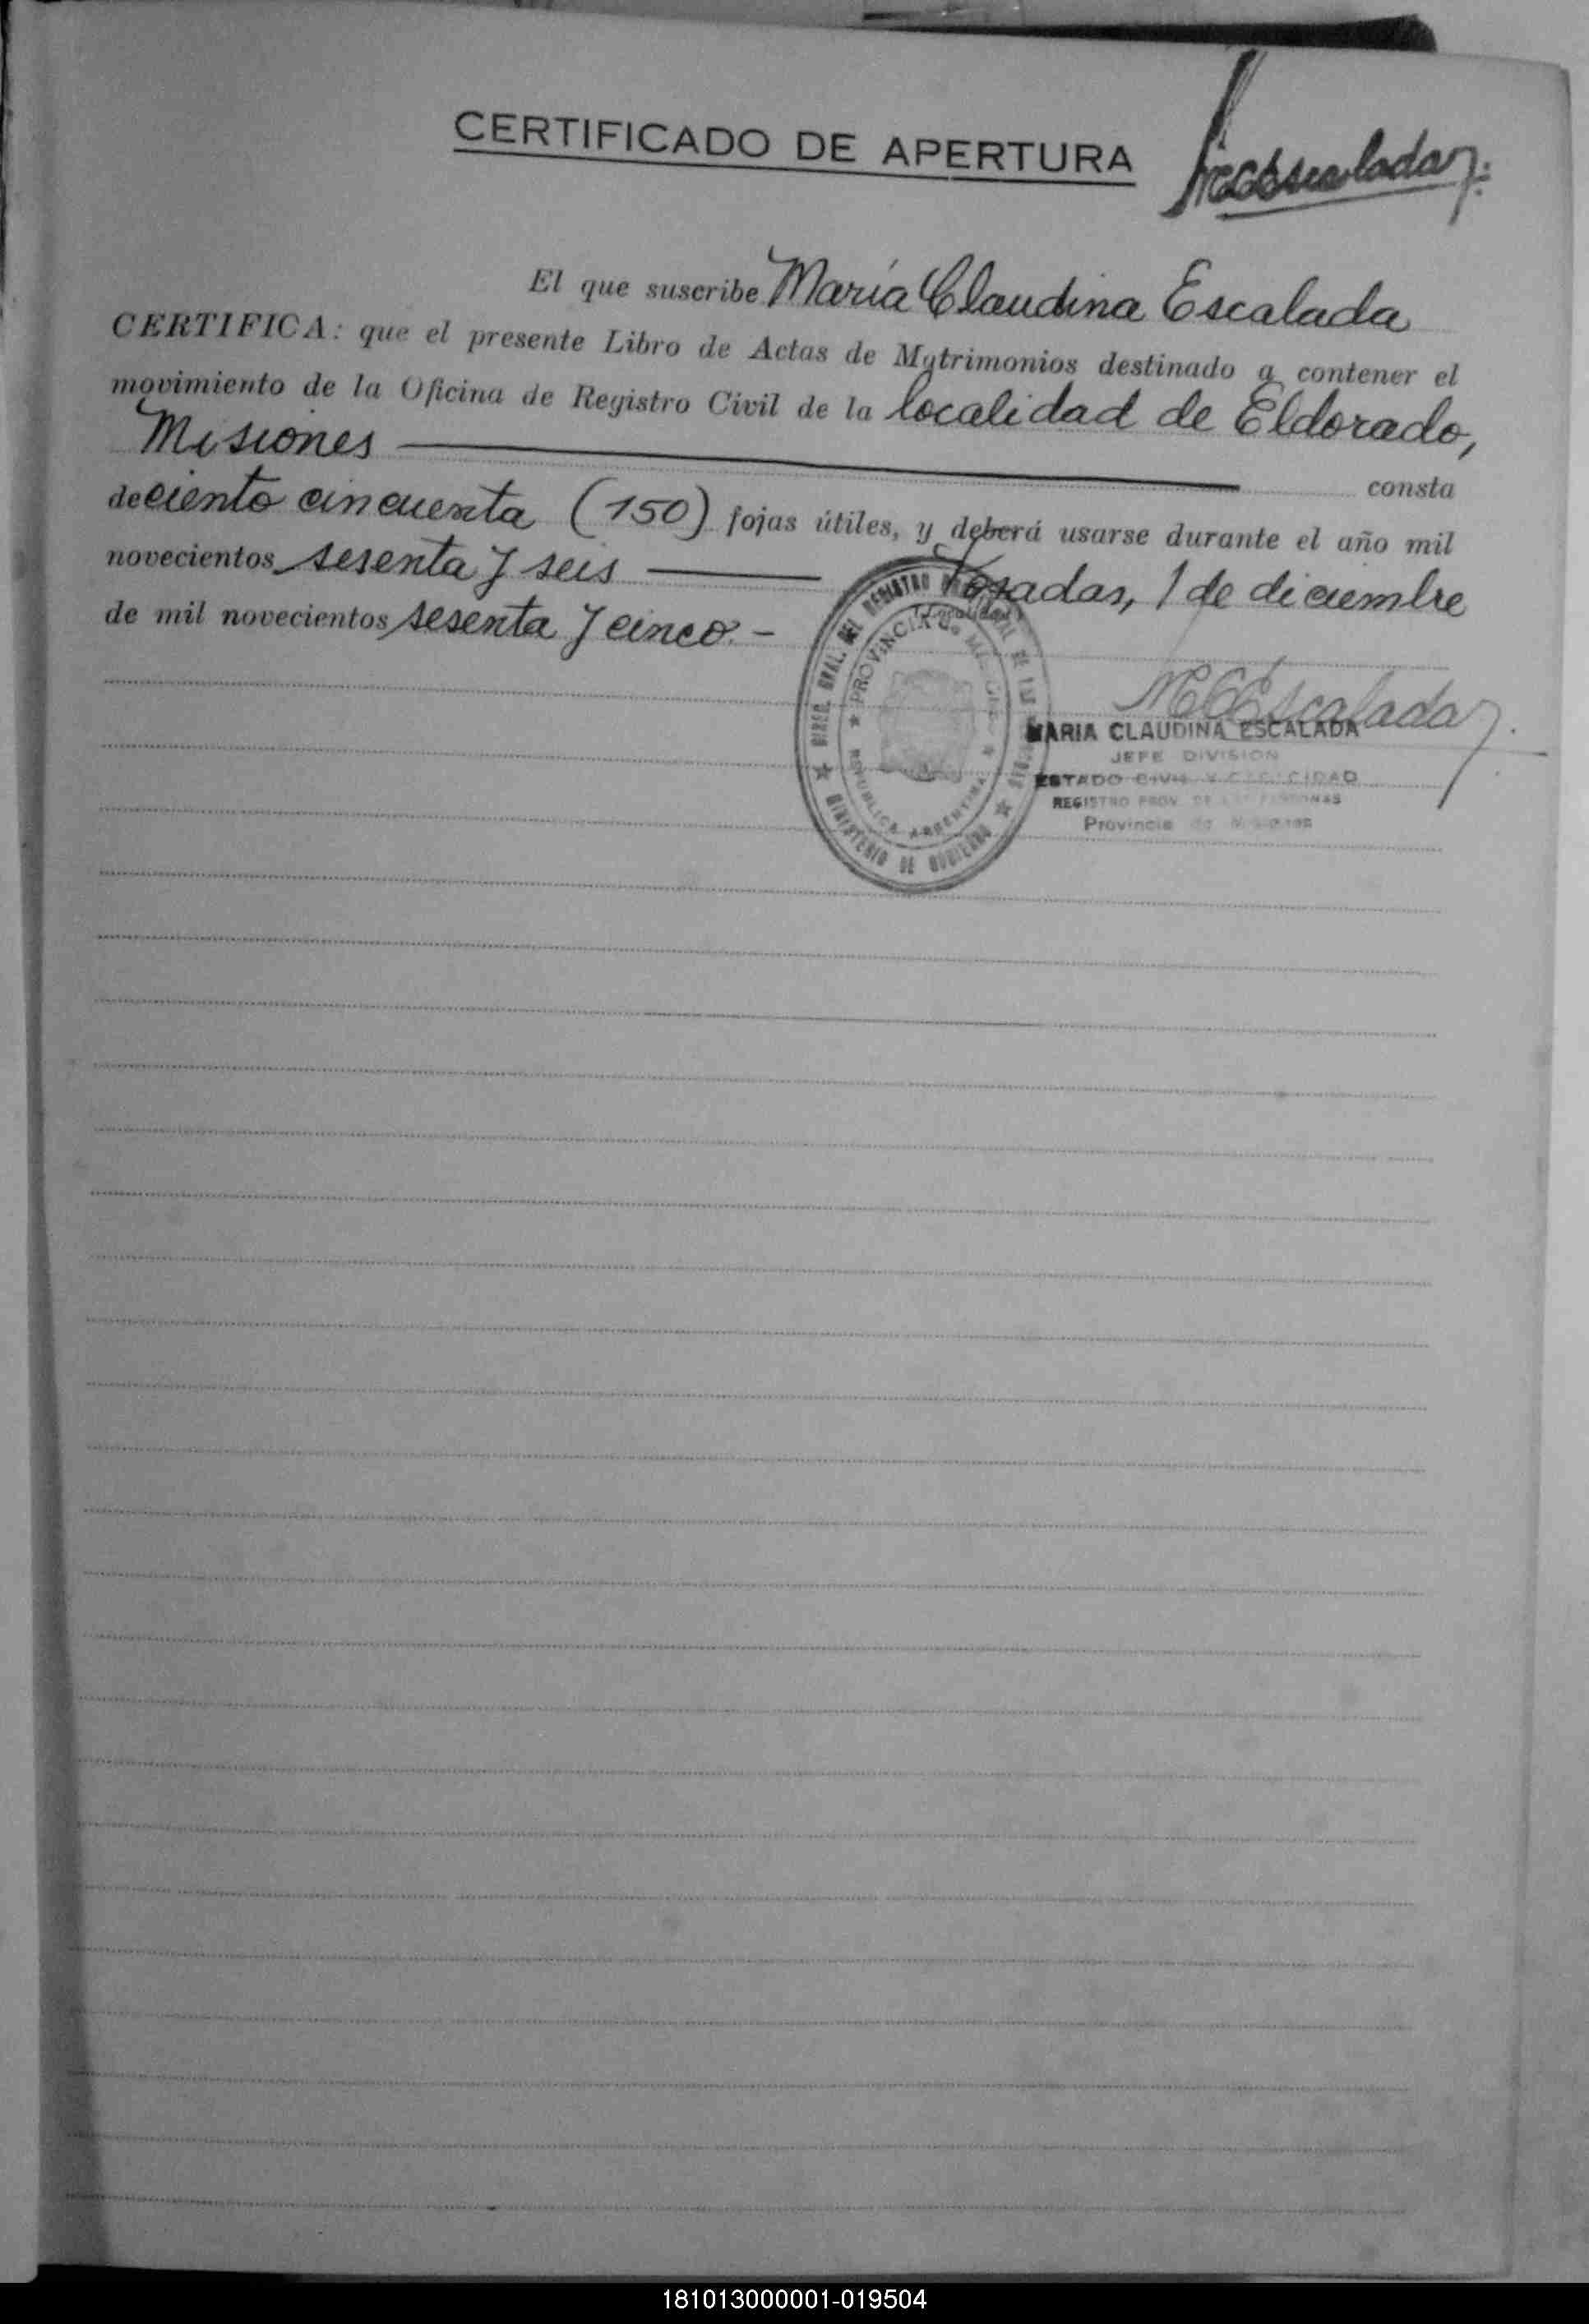 CERTIFICADO DE APERTURA
MCEscalada
El que suscribe María Claudina Escalada
CERTIFICA: que el presente Libro de Actas de Mytrimonios destinado a contener el
movimiento de la Oficina de Registro Civil de la localidad de Eldorado,
Misiones consta
de ciento cincuenta (150) fojas útiles, y deberá usarse durante el año mil
novecientos sesenta y seis Posadas, 1 de diciembre
(Localidad)
de mil novecientos sesenta y cinco.-
DIREC. GRAL. DEL REGISTRO DE LAS
PROVINCIA DE MISIONES
REPUBLICA ARGENTINA
MINISTERIO DE GOBIERNO
MCEscalada
MARIA CLAUDINA ESCALADA
JEFE DIVISION
ESTADO CIVIL Y CAPACIDAD
REGISTRO PROV. DE LAS PERSONAS
Provincia de Misiones
181013000001-019504